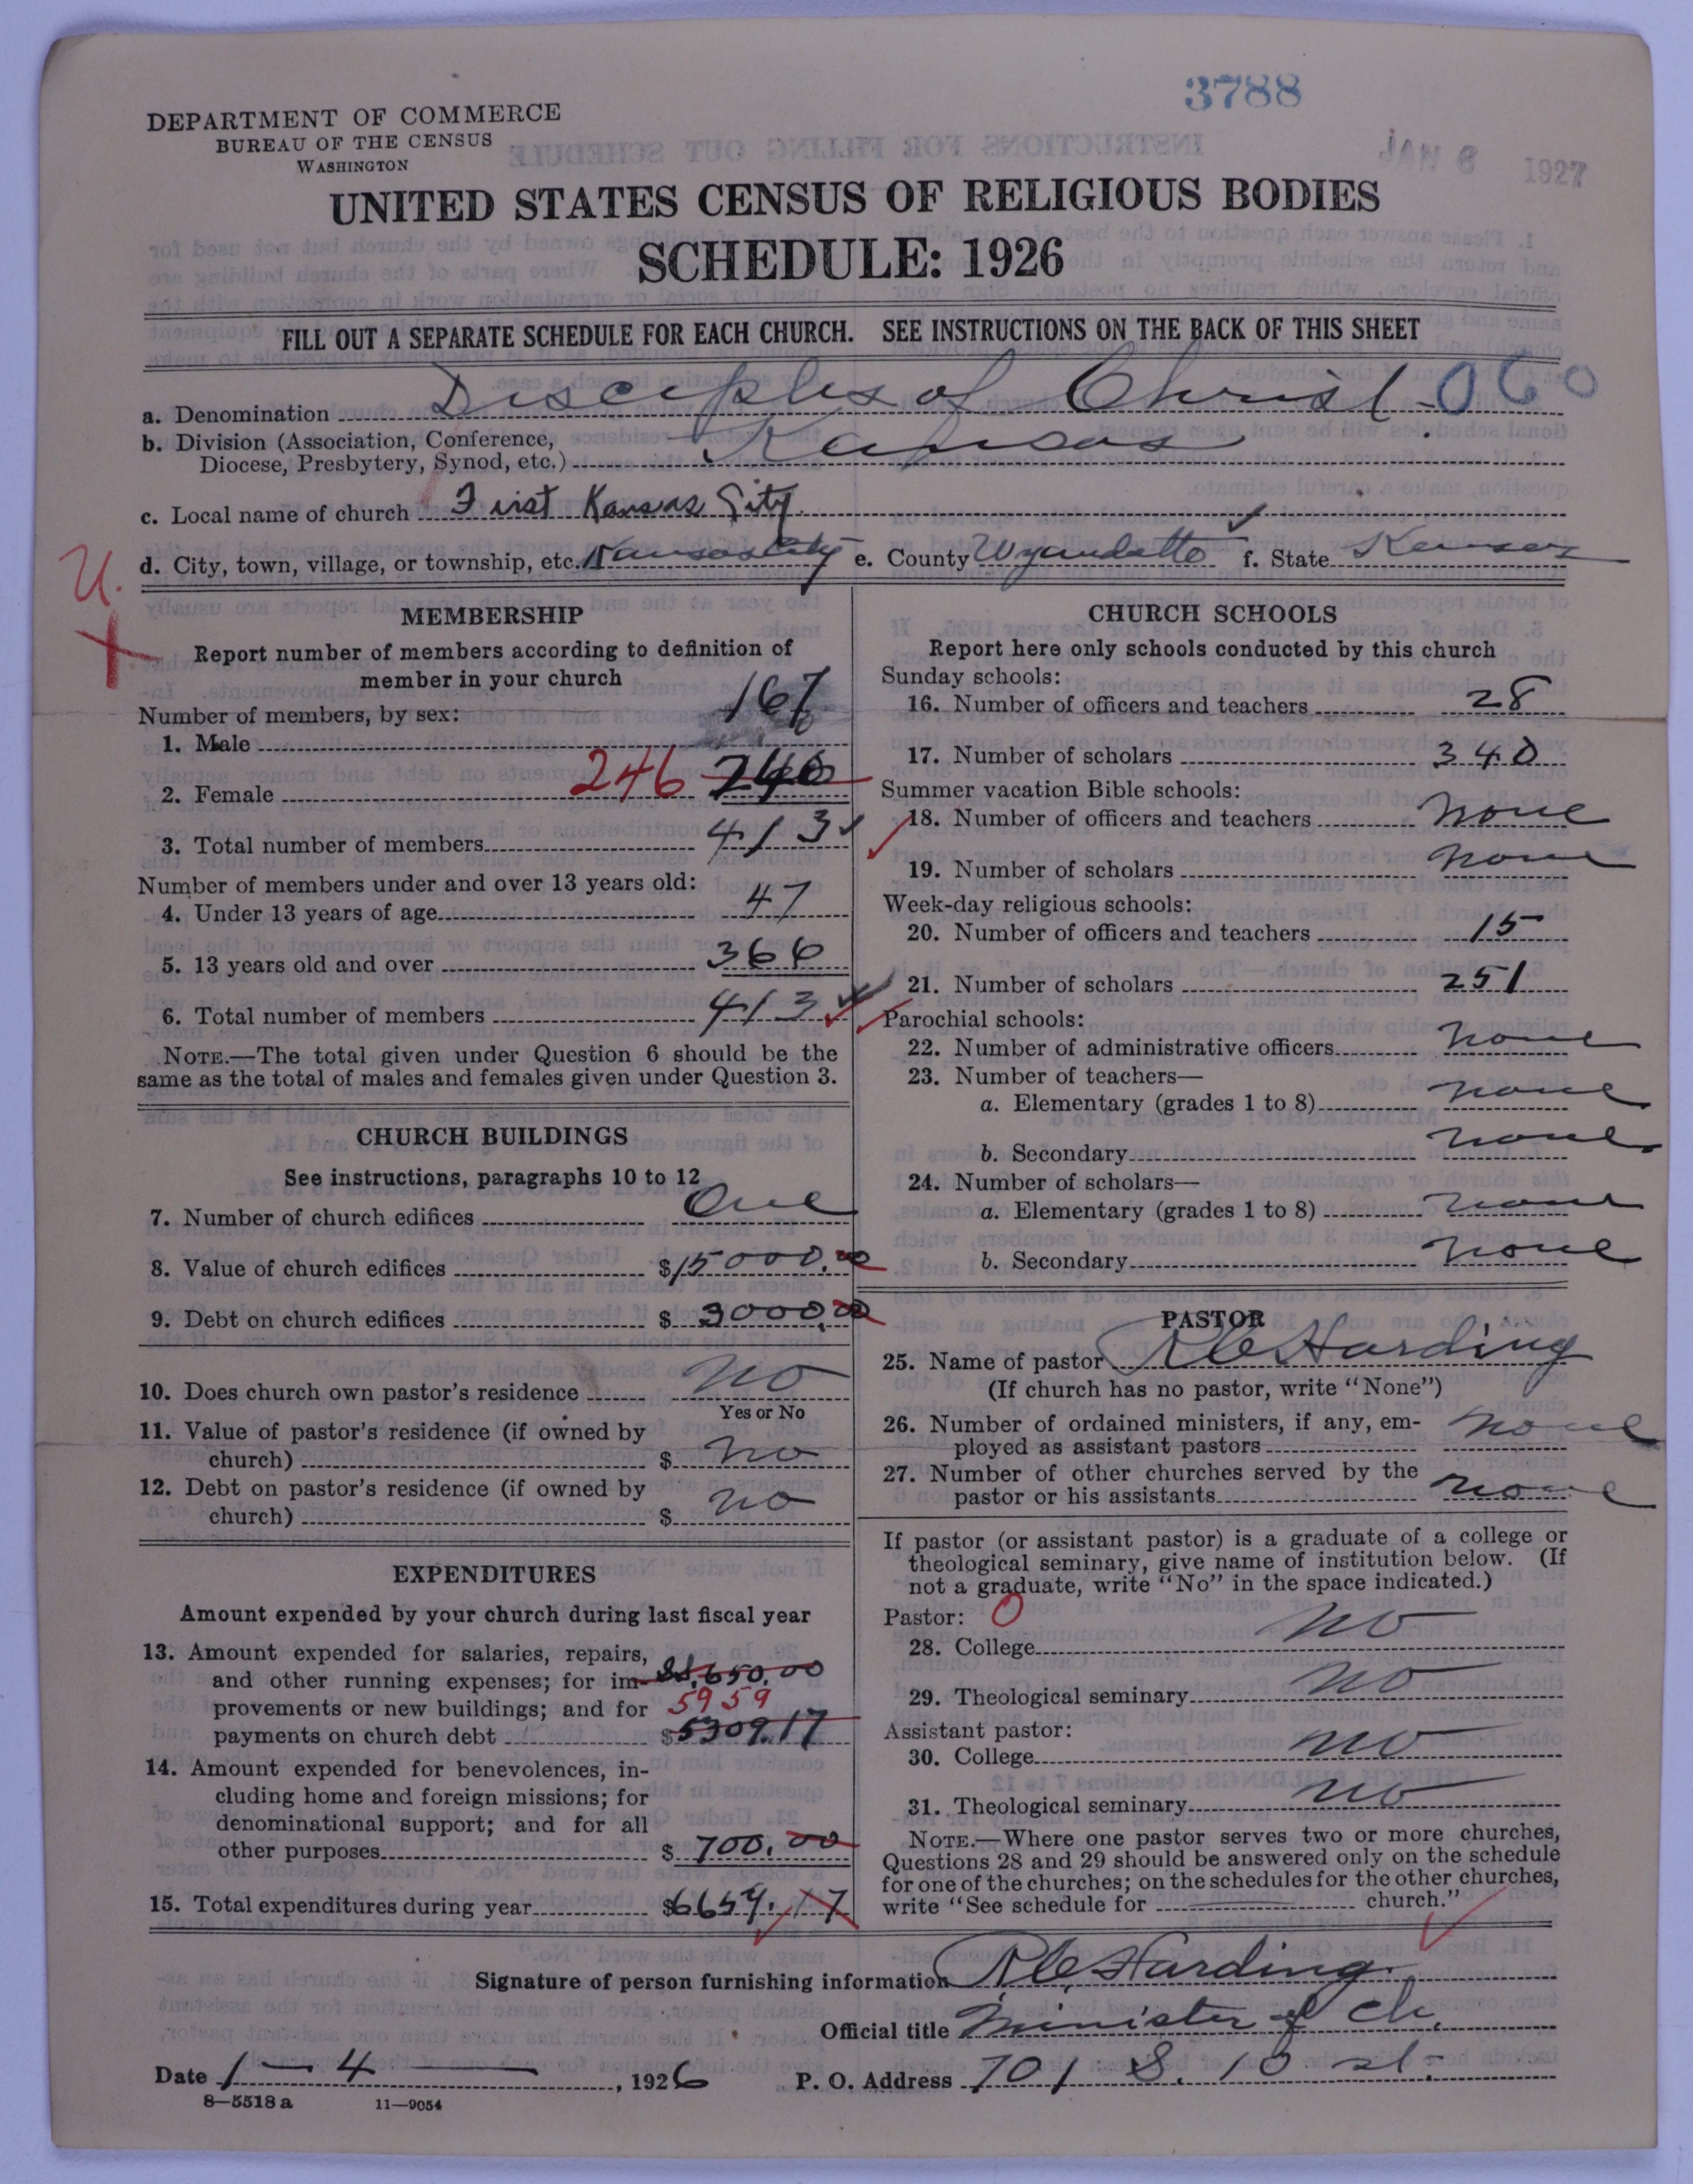 3788
DEPARTMENT OF COMMERCE
BUREAU OF THE CENSUS
WASHINGTON
JAN 6 1927
UNITED STATES CENSUS OF RELIGIOUS BODIES
SCHEDULE: 1926
FILL OUT A SEPARATE SCHEDULE FOR EACH CHURCH. SEE INSTRUCTIONS ON THE BACK OF THIS SHEET
a. Denomination Disciples of Christ 060
b. Division (Association, Conference,
Diocese, Presbytery, Synod, etc.) Kansas
c. Local name of church First Kansas City
d. City, town, village, or township, etc. Kansas City e. County Wyandotte f. State Kansas
U.
X
MEMBERSHIP
Report number of members according to definition of
member in your church
Number of members, by sex:
1. Male 167
2. Female 246 246
3. Total number of members 413
Number of members under and over 13 years old:
4. Under 13 years of age 47
5. 13 years old and over 366
6. Total number of members 413
NOTE.—The total given under Question 6 should be the
same as the total of males and females given under Question 3.
CHURCH BUILDINGS
See instructions, paragraphs 10 to 12
7. Number of church edifices One
8. Value of church edifices $15000.00
9. Debt on church edifices $3000.00
10. Does church own pastor's residence No
Yes or No
11. Value of pastor's residence (if owned by
church) $ No
12. Debt on pastor's residence (if owned by
church) $ No
EXPENDITURES
Amount expended by your church during last fiscal year
13. Amount expended for salaries, repairs,
and other running expenses; for im- 650.00
provements or new buildings; and for 5959
payments on church debt $5309.17
14. Amount expended for benevolences, in-
cluding home and foreign missions; for
denominational support; and for all
other purposes $700.00
15. Total expenditures during year $6659.17
CHURCH SCHOOLS
Report here only schools conducted by this church
Sunday schools:
16. Number of officers and teachers 28
17. Number of scholars 340
Summer vacation Bible schools:
18. Number of officers and teachers none
19. Number of scholars none
Week-day religious schools:
20. Number of officers and teachers 15
21. Number of scholars 251
Parochial schools:
22. Number of administrative officers none
23. Number of teachers—
a. Elementary (grades 1 to 8) none
b. Secondary none
24. Number of scholars—
a. Elementary (grades 1 to 8) none
b. Secondary none
PASTOR
25. Name of pastor Harding
(If church has no pastor, write "None")
26. Number of ordained ministers, if any, em-
ployed as assistant pastors none
27. Number of other churches served by the
pastor or his assistants none
If pastor (or assistant pastor) is a graduate of a college or
theological seminary, give name of institution below. (If
not a graduate, write "No" in the space indicated.)
Pastor: O
28. College no
29. Theological seminary no
Assistant pastor:
30. College no
31. Theological seminary no
NOTE.—Where one pastor serves two or more churches,
Questions 28 and 29 should be answered only on the schedule
for one of the churches; on the schedules for the other churches,
write "See schedule for church."
Signature of person furnishing information Harding
Official title Minister of Ch.
Date 1 — 4 —, 1926 P. O. Address 701 S. 10 st.
8—5518a 11—9054